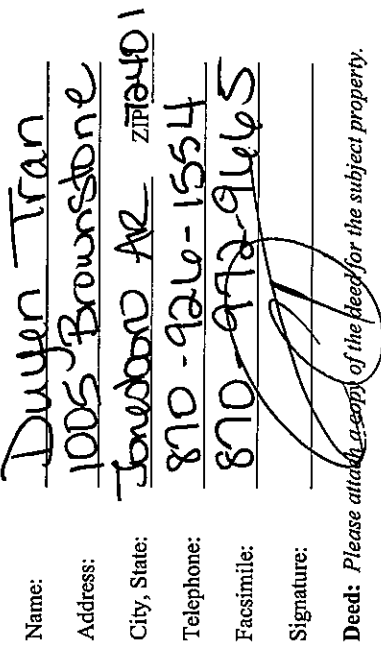 Name: Duyen Tran
Address: 1005 Brownstone
City, State: Jonesboro AR ZIP 72401
Telephone: 870-926-1554
Facsimile: 870-972-9665
Signature:
Deed: Please attach a copy of the deed for the subject property.